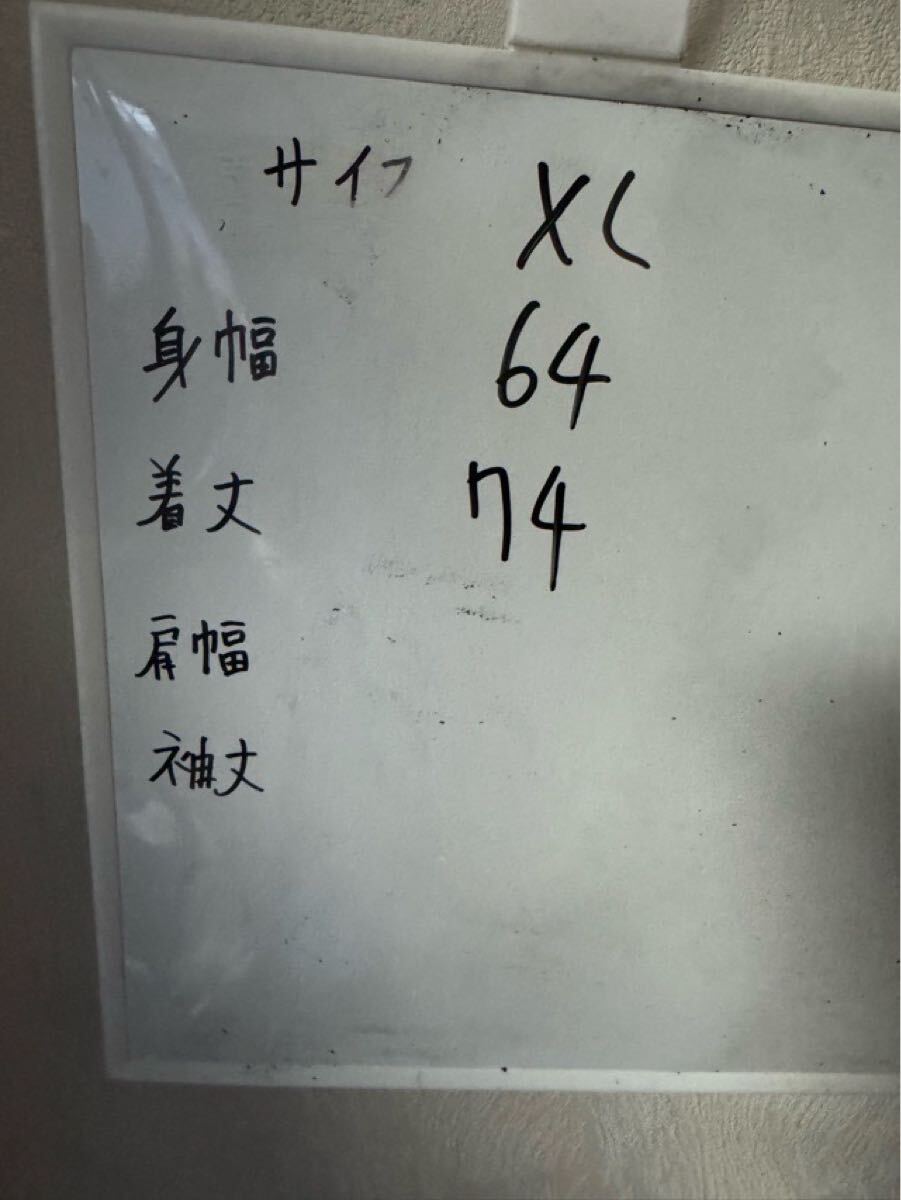 サイフ XL
身幅 64
着丈 74
肩幅
袖丈